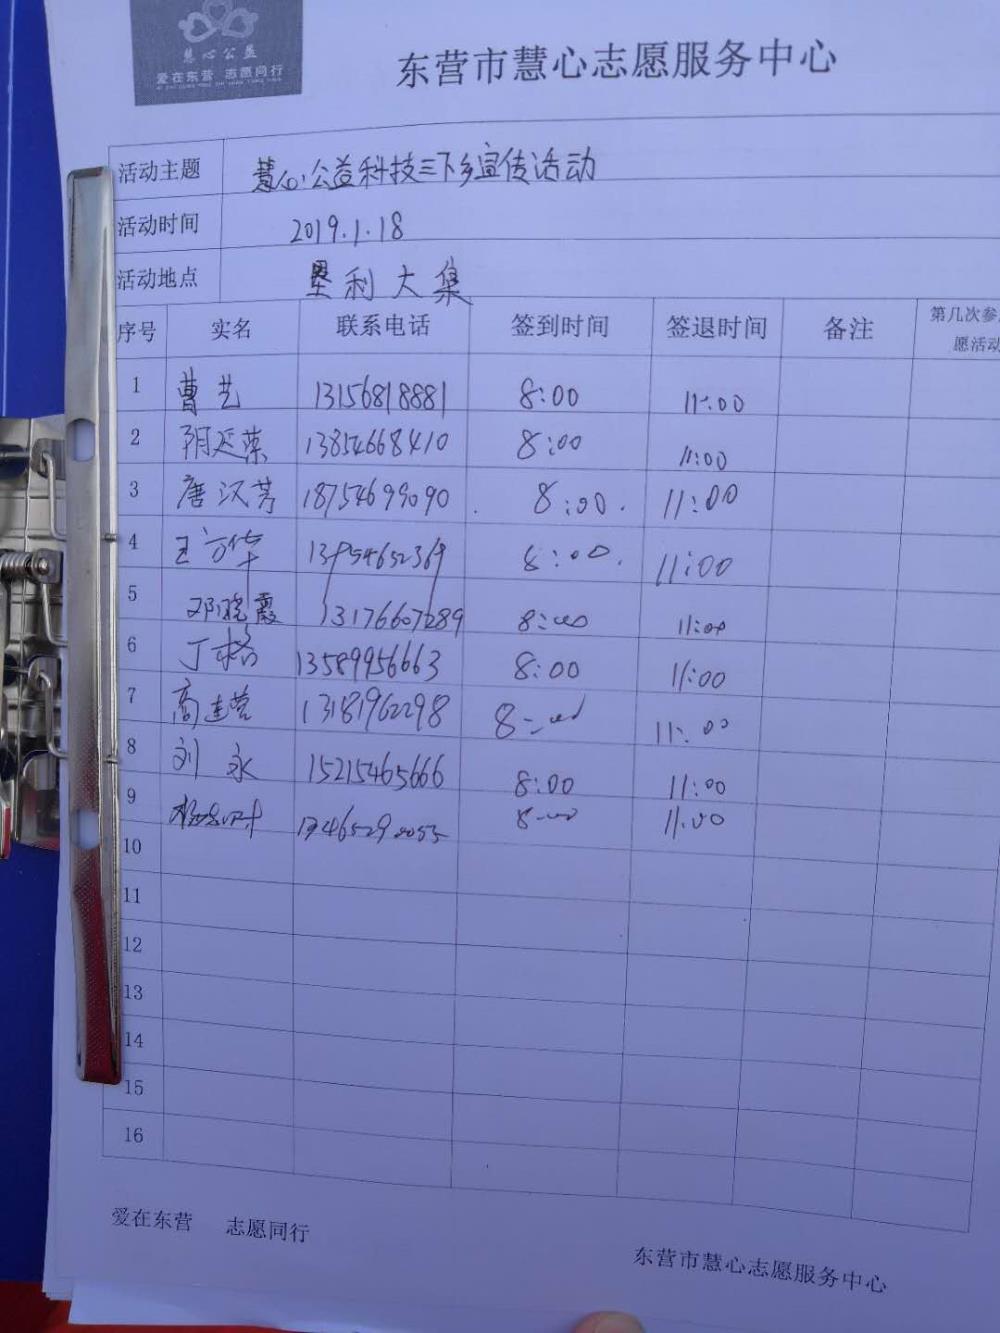 慧心公益
爱在东营 志愿同行
东营市慧心志愿服务中心
活动主题 慧心公益科技三下乡宣传活动
活动时间 2019.1.18
活动地点 垦利大集
序号 实名 联系电话 签到时间 签退时间 备注 第几次参
愿活动
1 曹艺 13156818881 8:00 11:00
2 阴延荣 13854668410 8:00 11:00
3 唐汉芳 18754699090 8:00 11:00
4 王方华 13954652369 8:00 11:00
5 邓晓霞 13176607289 8:00 11:00
6 丁格 13589956663 8:00 11:00
7 高建营 13181962298 8:00 11:00
8 刘永 15215465666 8:00 11:00
9 8:00 11:00
10
11
12
13
14
15
16
爱在东营 志愿同行
东营市慧心志愿服务中心